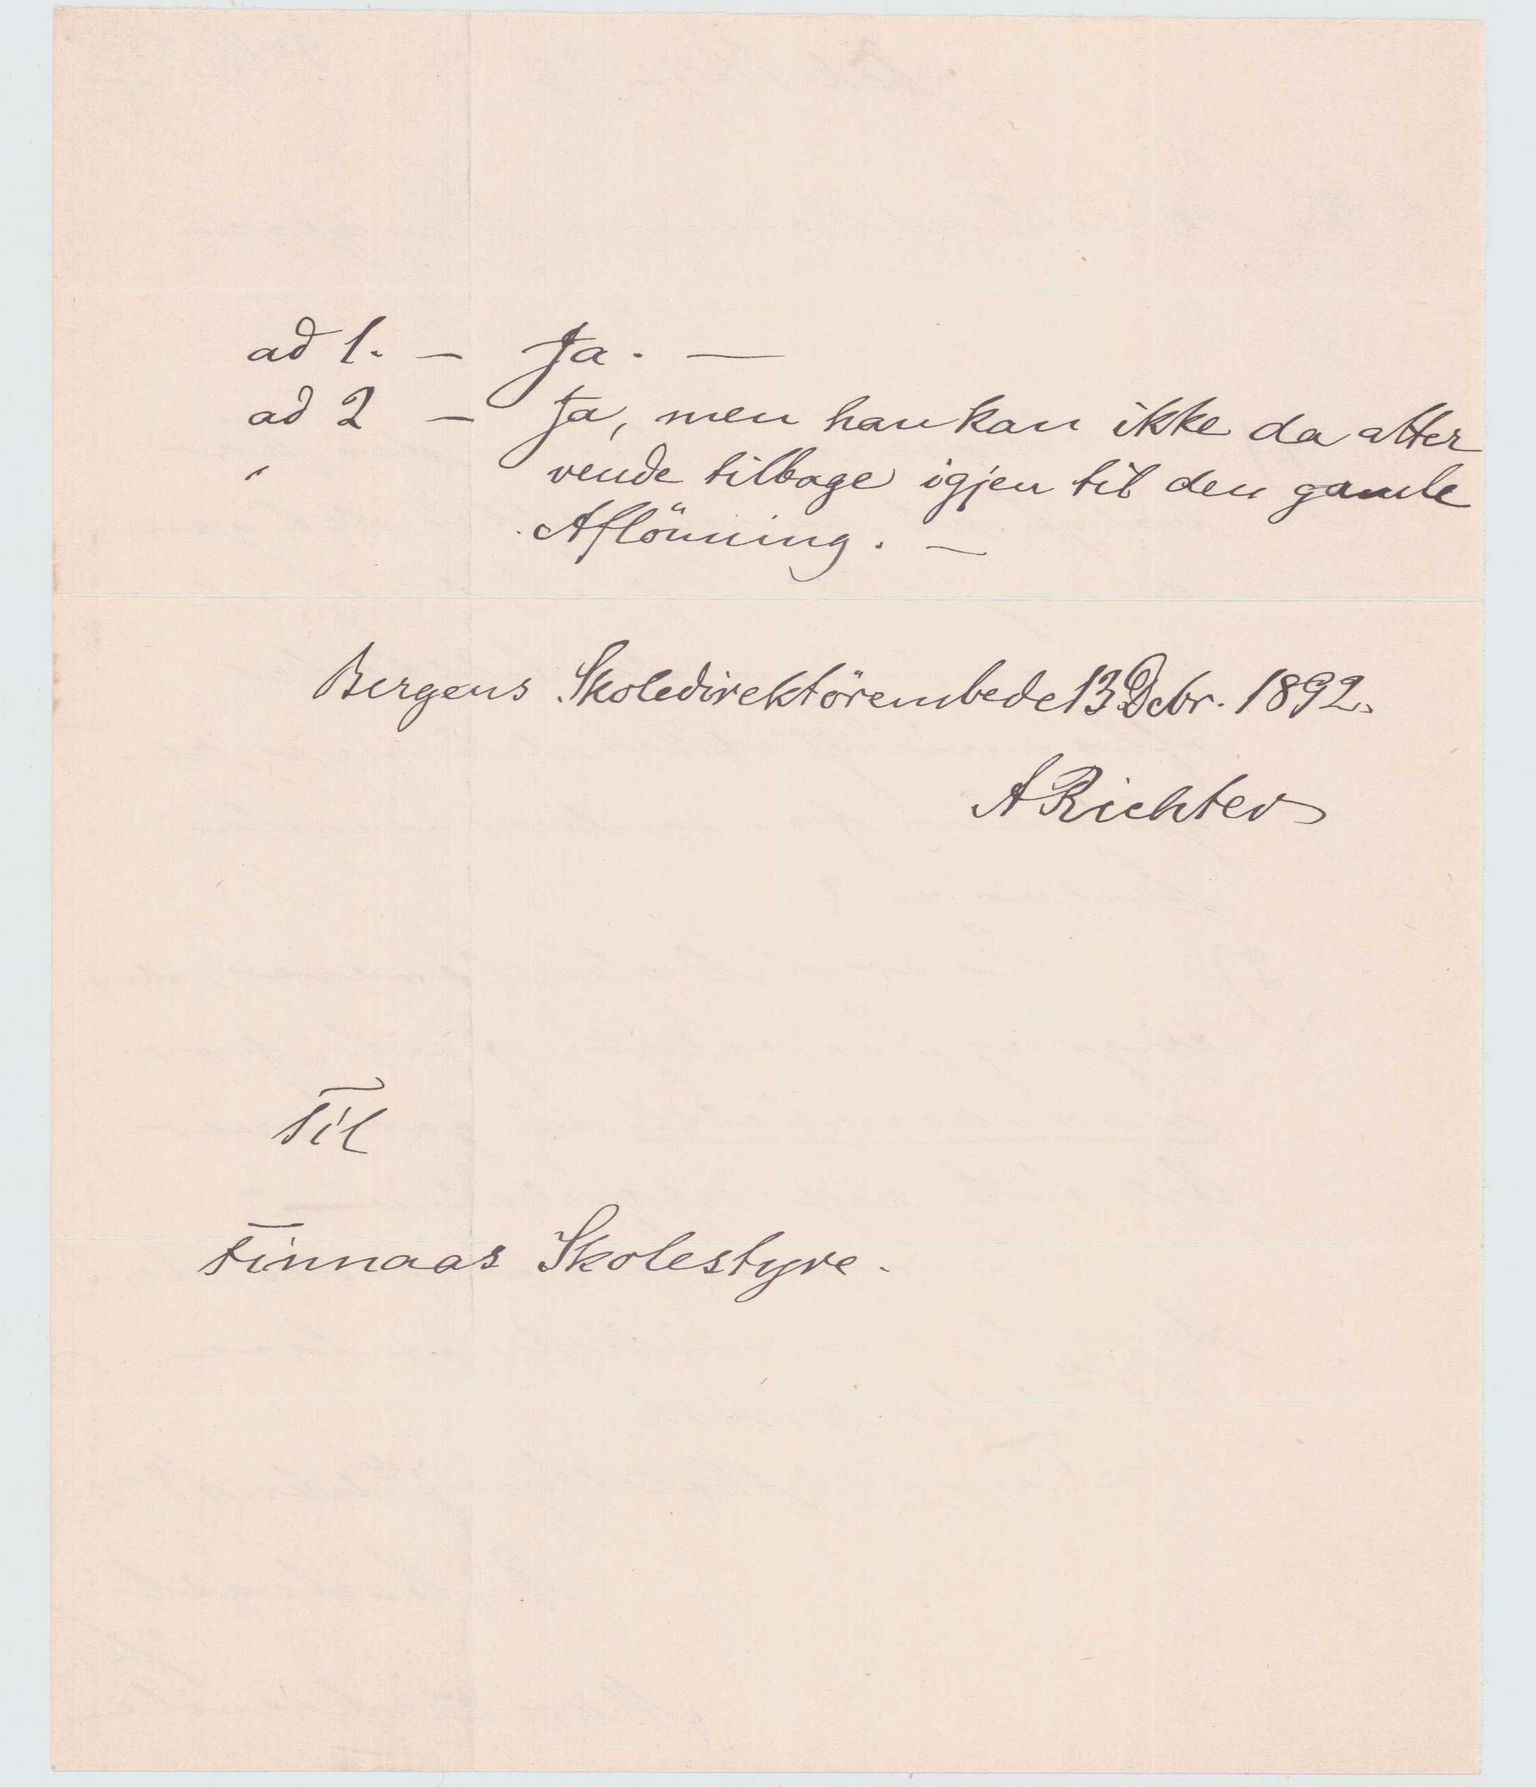 ad 1. — Ja. —
ad 2 — Ja, men han kan ikke da atter
" vende tilbage igjen til den gamle
Aflönning. —
Bergens Skoledirektörembede 13 Debr. 1892.
A Richter
Til
Finnaas Skolestyre.